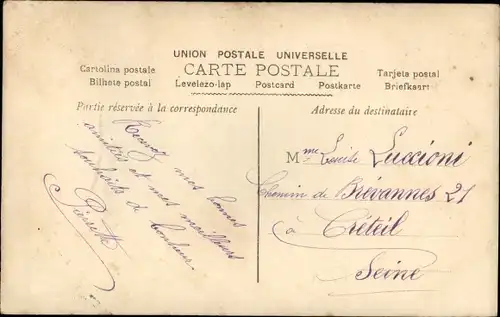 UNION POSTALE UNIVERSELLE
CARTE POSTALE
Cartolina postale
Bilhete postal
Levelezo-lap
Postcard
Postkarte
Tarjeta postal
Briefkaart
Partie réservée à la correspondance
Recevez mes bonnes
amitiés et mes meilleurs
souhaits de bonheur.
Pierrette
Adresse du destinataire
Mme Louise Luccioni
Chemin de Brévannes 21
à Créteil
Seine